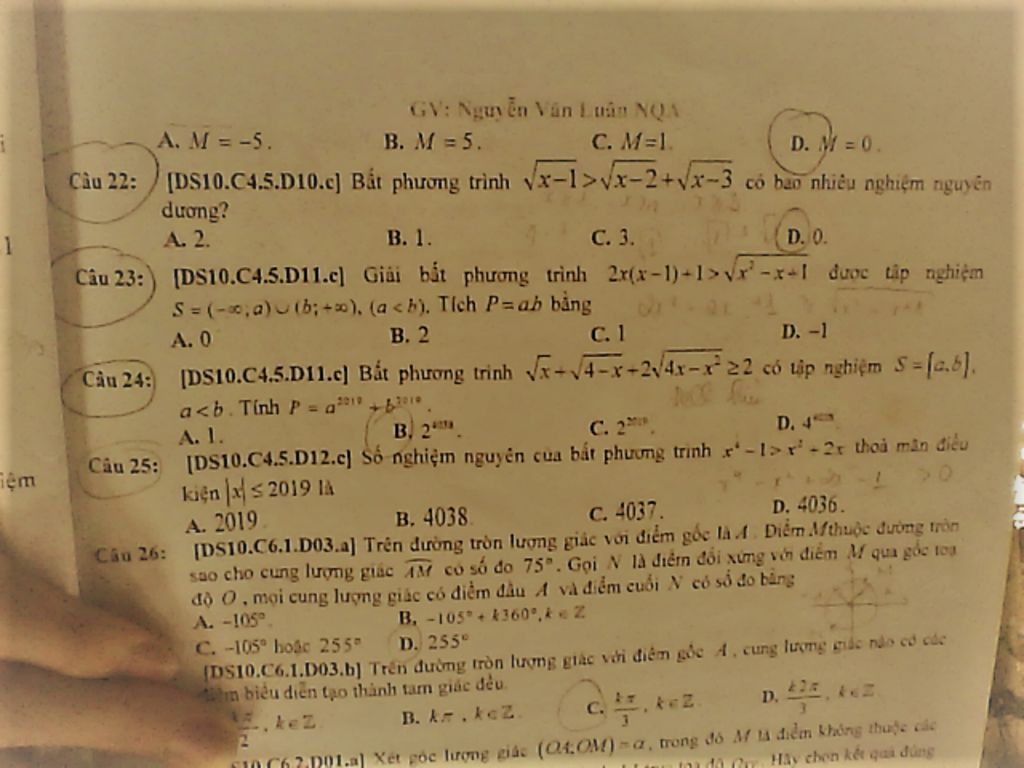 GV: Nguyễn Văn Luân NQA
A. M = -5. B. M = 5. C. M=1. D. M = 0.
Câu 22: [DS10.C4.5.D10.c] Bất phương trình √(x-1) > √(x-2) + √(x-3) có bao nhiêu nghiệm nguyên
dương?
A. 2. B. 1. C. 3. D. 0.
Câu 23: [DS10.C4.5.D11.c] Giải bất phương trình 2x(x-1)+1 > √(x²-x+1) được tập nghiệm
S = (-∞; a) ∪ (b; +∞), (a < b). Tích P = ab bằng
A. 0 B. 2 C. 1 D. -1
Câu 24: [DS10.C4.5.D11.c] Bất phương trình √x + √(4-x) + 2√(4x-x²) ≥ 2 có tập nghiệm S = [a,b],
a < b. Tính P = a²⁰¹⁹ + b²⁰¹⁹.
A. 1. B. 2⁴⁰³⁸. C. 2²⁰¹⁹. D. 4⁴⁰³⁸.
Câu 25: [DS10.C4.5.D12.c] Số nghiệm nguyên của bất phương trình x⁴ - 1 > x² + 2x thoả mãn điều
kiện |x| ≤ 2019 là
A. 2019 B. 4038. C. 4037. D. 4036.
Câu 26: [DS10.C6.1.D03.a] Trên đường tròn lượng giác với điểm gốc là A. Điểm M thuộc đường tròn
sao cho cung lượng giác AM có số đo 75°. Gọi N là điểm đối xứng với điểm M qua gốc toạ
độ O, mọi cung lượng giác có điểm đầu A và điểm cuối N có số đo bằng
A. -105°. B. -105° + k360°, k ∈ Z
C. -105° hoặc 255° D. 255°
[DS10.C6.1.D03.b] Trên đường tròn lượng giác với điểm gốc A, cung lượng giác nào có các
biểu diễn tạo thành tam giác đều.
kπ/2, k ∈ Z B. kπ, k ∈ Z. C. kπ/3, k ∈ Z. D. k2π/3, k ∈ Z
C6.2.D01.a] Xét góc lượng giác (OA;OM) = α, trong đó M là điểm không thuộc các
toạ độ Oxy. Hãy chọn kết quả đúng
iệm